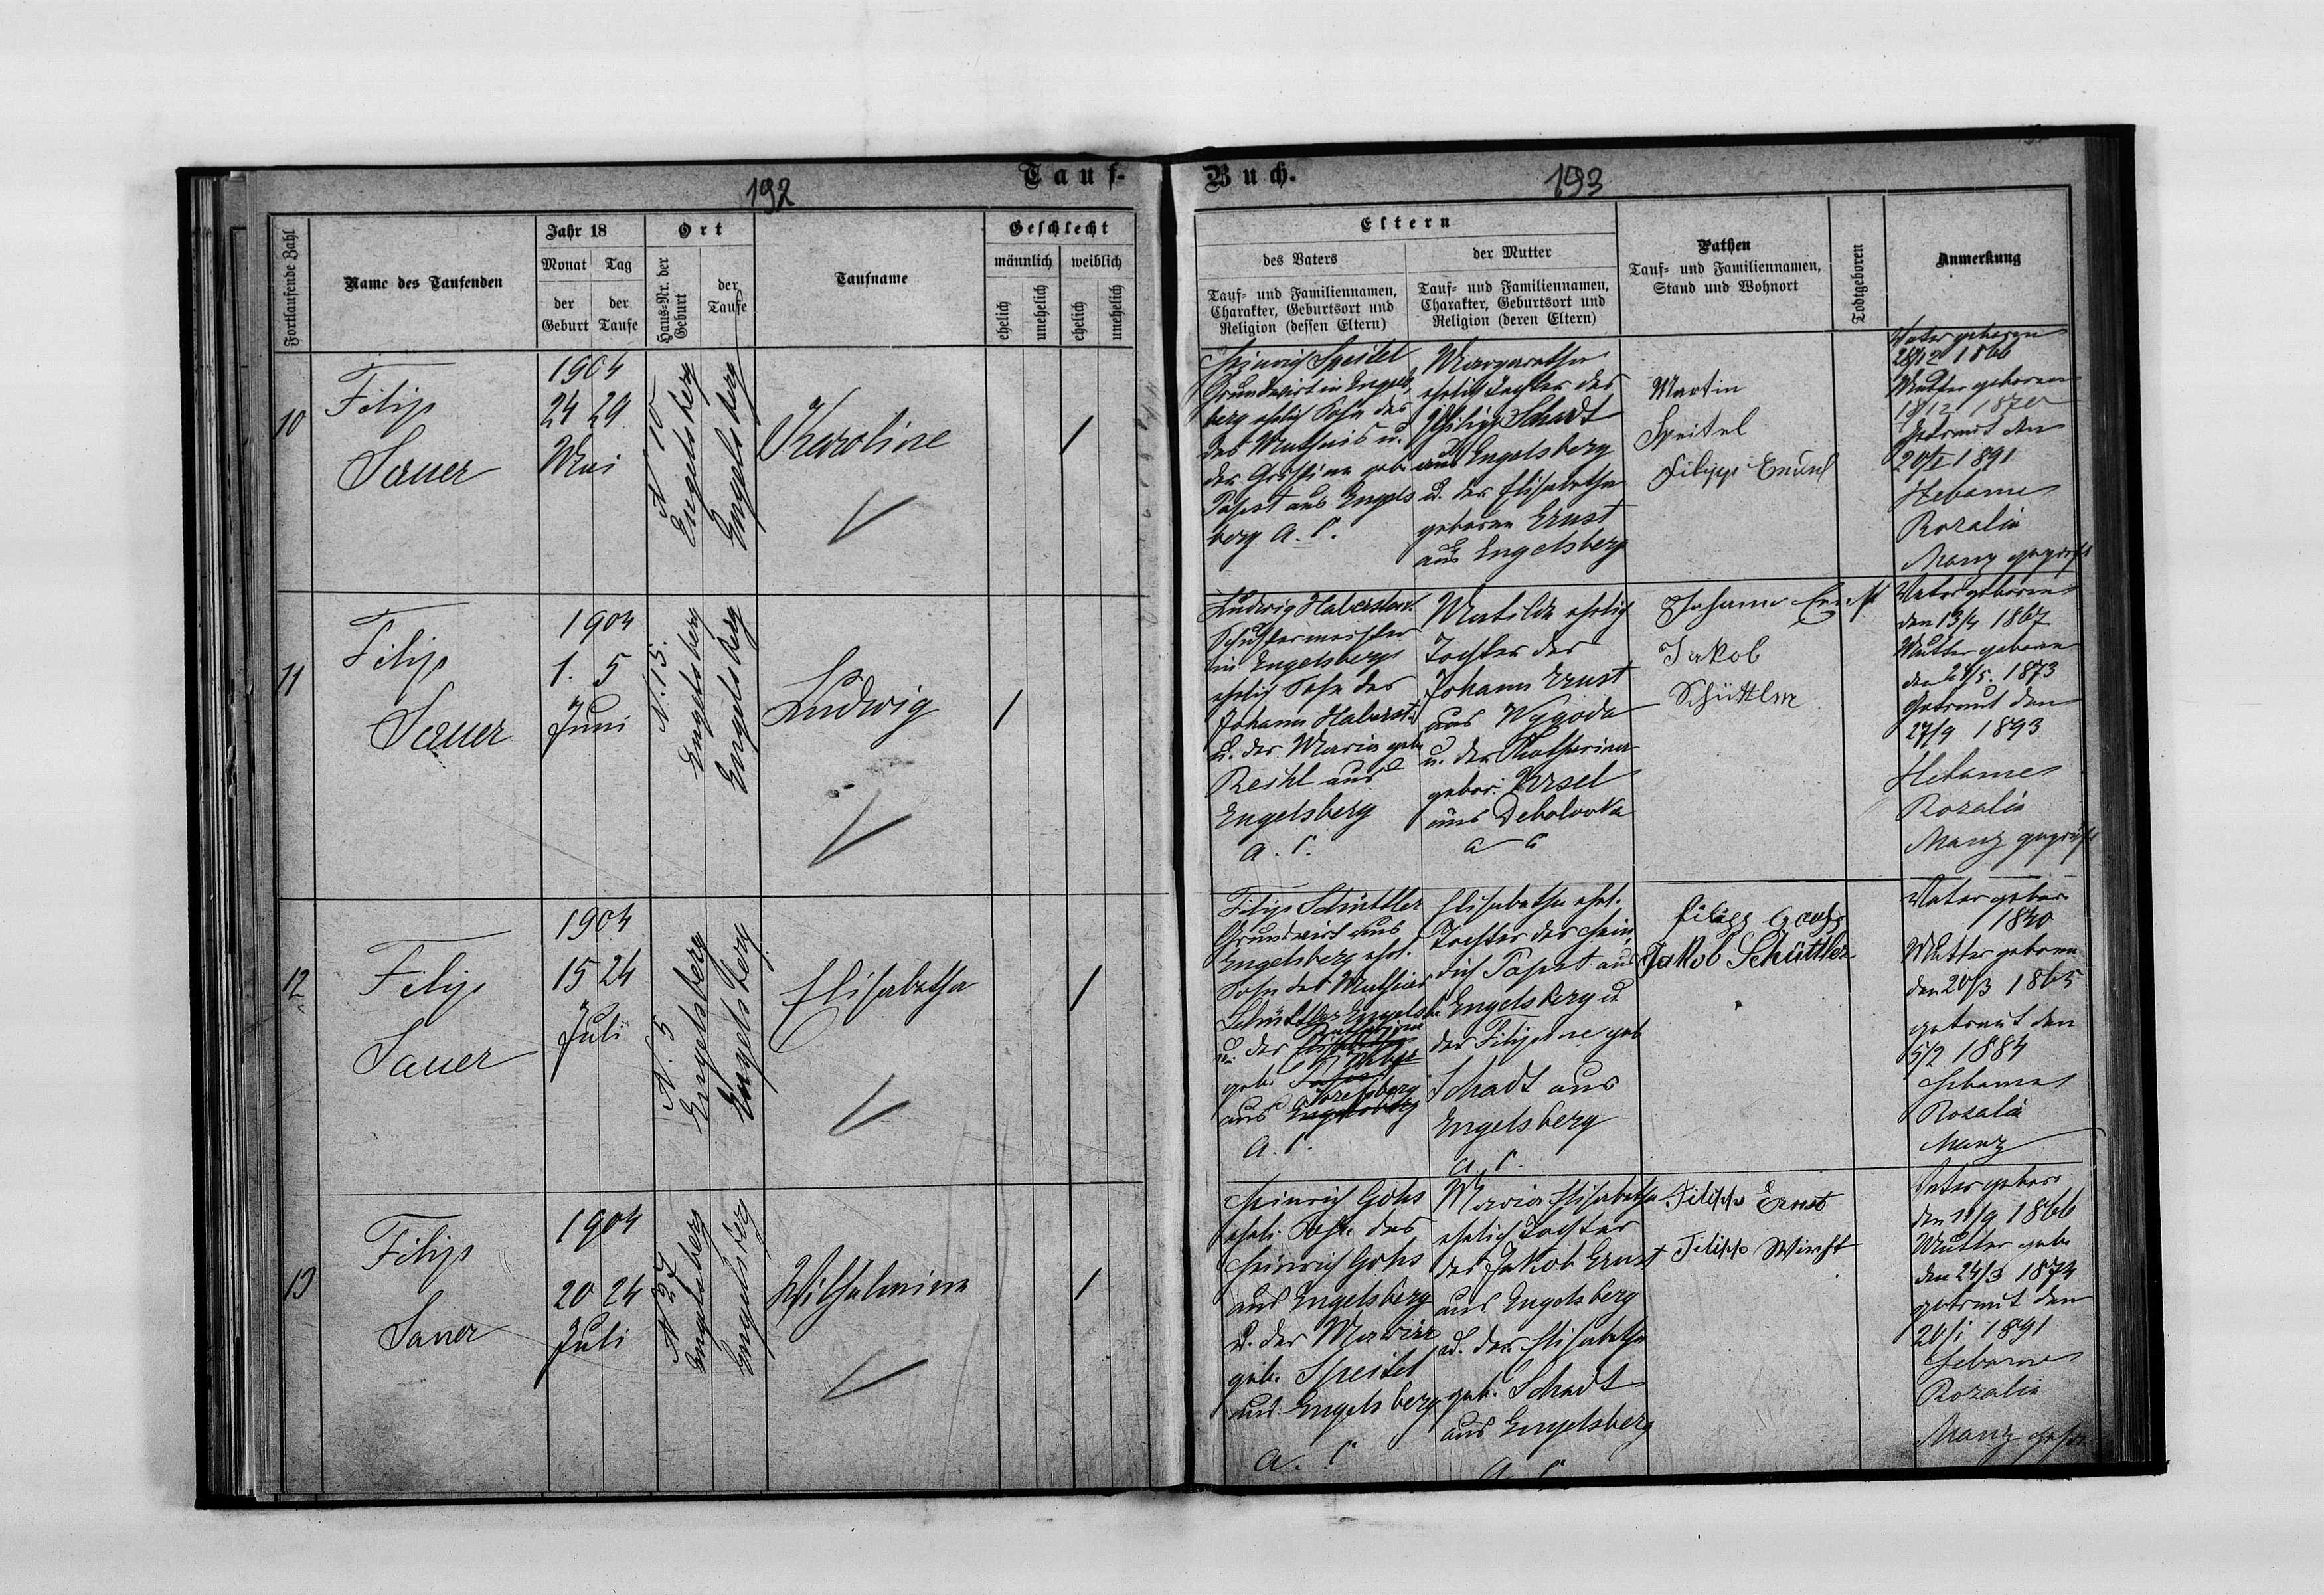 192
Tauf-
Fortlaufende Zahl
Name des Taufenden
Jahr 18
Monat Tag
der Geburt
der Taufe
Ort
Haus-Nr. der Geburt
der Taufe
Taufname
Geschlecht
männlich weiblich
ehelich
unehelich
ehelich
unehelich
10
Filip
Sauer
1904
24 29
Mai
N 10
Engelsberg
Engelsberg
Karoline
11
Filip
Sauer
1904
1. 5
Juni
N. 15.
Engelsberg
Engelsberg
Ludwig
12
Filip
Sauer
1904
15 24
Juli
N. 5
Engelsberg
Engelsberg
Elisabetha
13
Filip
Sauer
1904
20 24
Juli
N 27
Engelsberg
Engelsberg
Wilhelmine
Buch.
193
Eltern
des Vaters
der Mutter
Tauf- und Familiennamen,
Charakter, Geburtsort und
Religion (dessen Eltern)
Tauf- und Familiennamen,
Charakter, Geburtsort und
Religion (deren Eltern)
Pathen
Tauf- und Familiennamen,
Stand und Wohnort
Todtgeboren
Anmerkung
Heinrich Speitel
Grundwirt in Engels
berg ehlich Sohn des
des Mathias u.
der geb.
aus Engels
berg A. C.
Margaretha
ehlich Tochter des
Philipp Schadt
aus Engelsberg
u. der Elisabetha
geboren Ernst
aus Engelsberg
Martin
Speitel
Filipp
Vater geboren
1866
Mutter geboren
Getraut den
20/I 1891
Hebame
Rozalia
Manz geprüft
Ludwig
Schustermeister
in Engelsberg
ehelich Sohn des
Johann
u. der Maria geb.
Reihl aus
Engelsberg
A. C.
Matilde ehelich
Tochter des
Johann Ernst
aus Wygoda
u. der Katharina
gebor. Ursel
aus Debolowka
A C
Johann Ernst
Jakob
Schüttler
Vater geboren
den 13/4 1867
Mutter geboren
den 24/5. 1873
Getraut den
27/9 1893
Hebame
Rozalia
Manz geprüft
Filip Schüttler
Grundwirt aus
Engelsberg ehel.
Sohn des Mathias
Schüttler
u. der
geb.
Josefsberg
aus Engelsberg
A. C.
Elisabetha ehel.
Tochter des Hein
rich Papst aus
Engelsberg u
der Filipine geb
Schadt aus
Engelsberg
A. C.
Filipp
Jakob Schüttler
Vater gebor.
Mutter geboren
den 20/3 1865
getraut den
5/2 1884
Hebame
Rozalia
Manz
Heinrich Gohs
eheli. Sohn des
Heinrich Gohs
aus Engelsberg
u. der Maria
geb. Speitel
aus Engelsberg
A. C
Maria Elisabetha
ehelich Tochter
des Jakob Ernst
aus Engelsberg
u. der Elisabetha
geb. Schadt
aus Engelsberg
A C
Filipp Ernst
Filipp
Vater gebor
den 11/9 1866
Mutter geb.
den 24/3 1874
getraut den
1891
Hebame
Rozalia
Manz